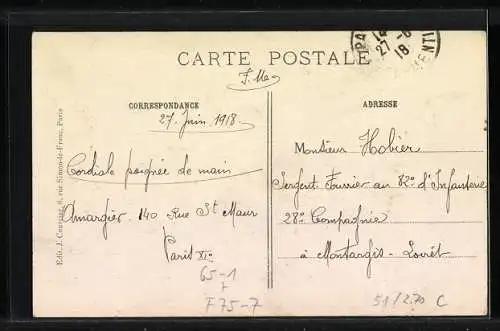 CARTE POSTALE
F. M.
CORRESPONDANCE
27 Juin 1918.
Cordiale poignée de main
Amargier. 140 Rue St Maur
Paris XIe
65-1
F 75-7
ADRESSE
Monsieur Hobier
Sergent Fourrier au 82e d'Infanterie
28e Compagnie
à Montargis - Loiret
51/270 C
27-6
18
Edit. J. Courcier, 8, rue Simon-le-Franc, Paris